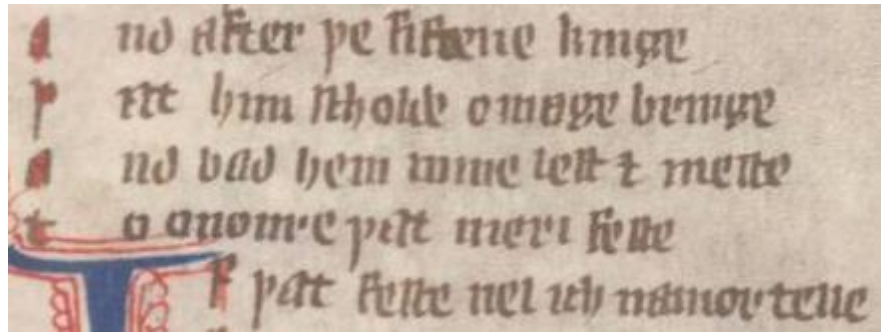 and after þe fiftene kinge
þat him scholde omage bringe
and bad hem come lest & meste
to anoure þat meri feste
Of þat feste nel ich namor telle